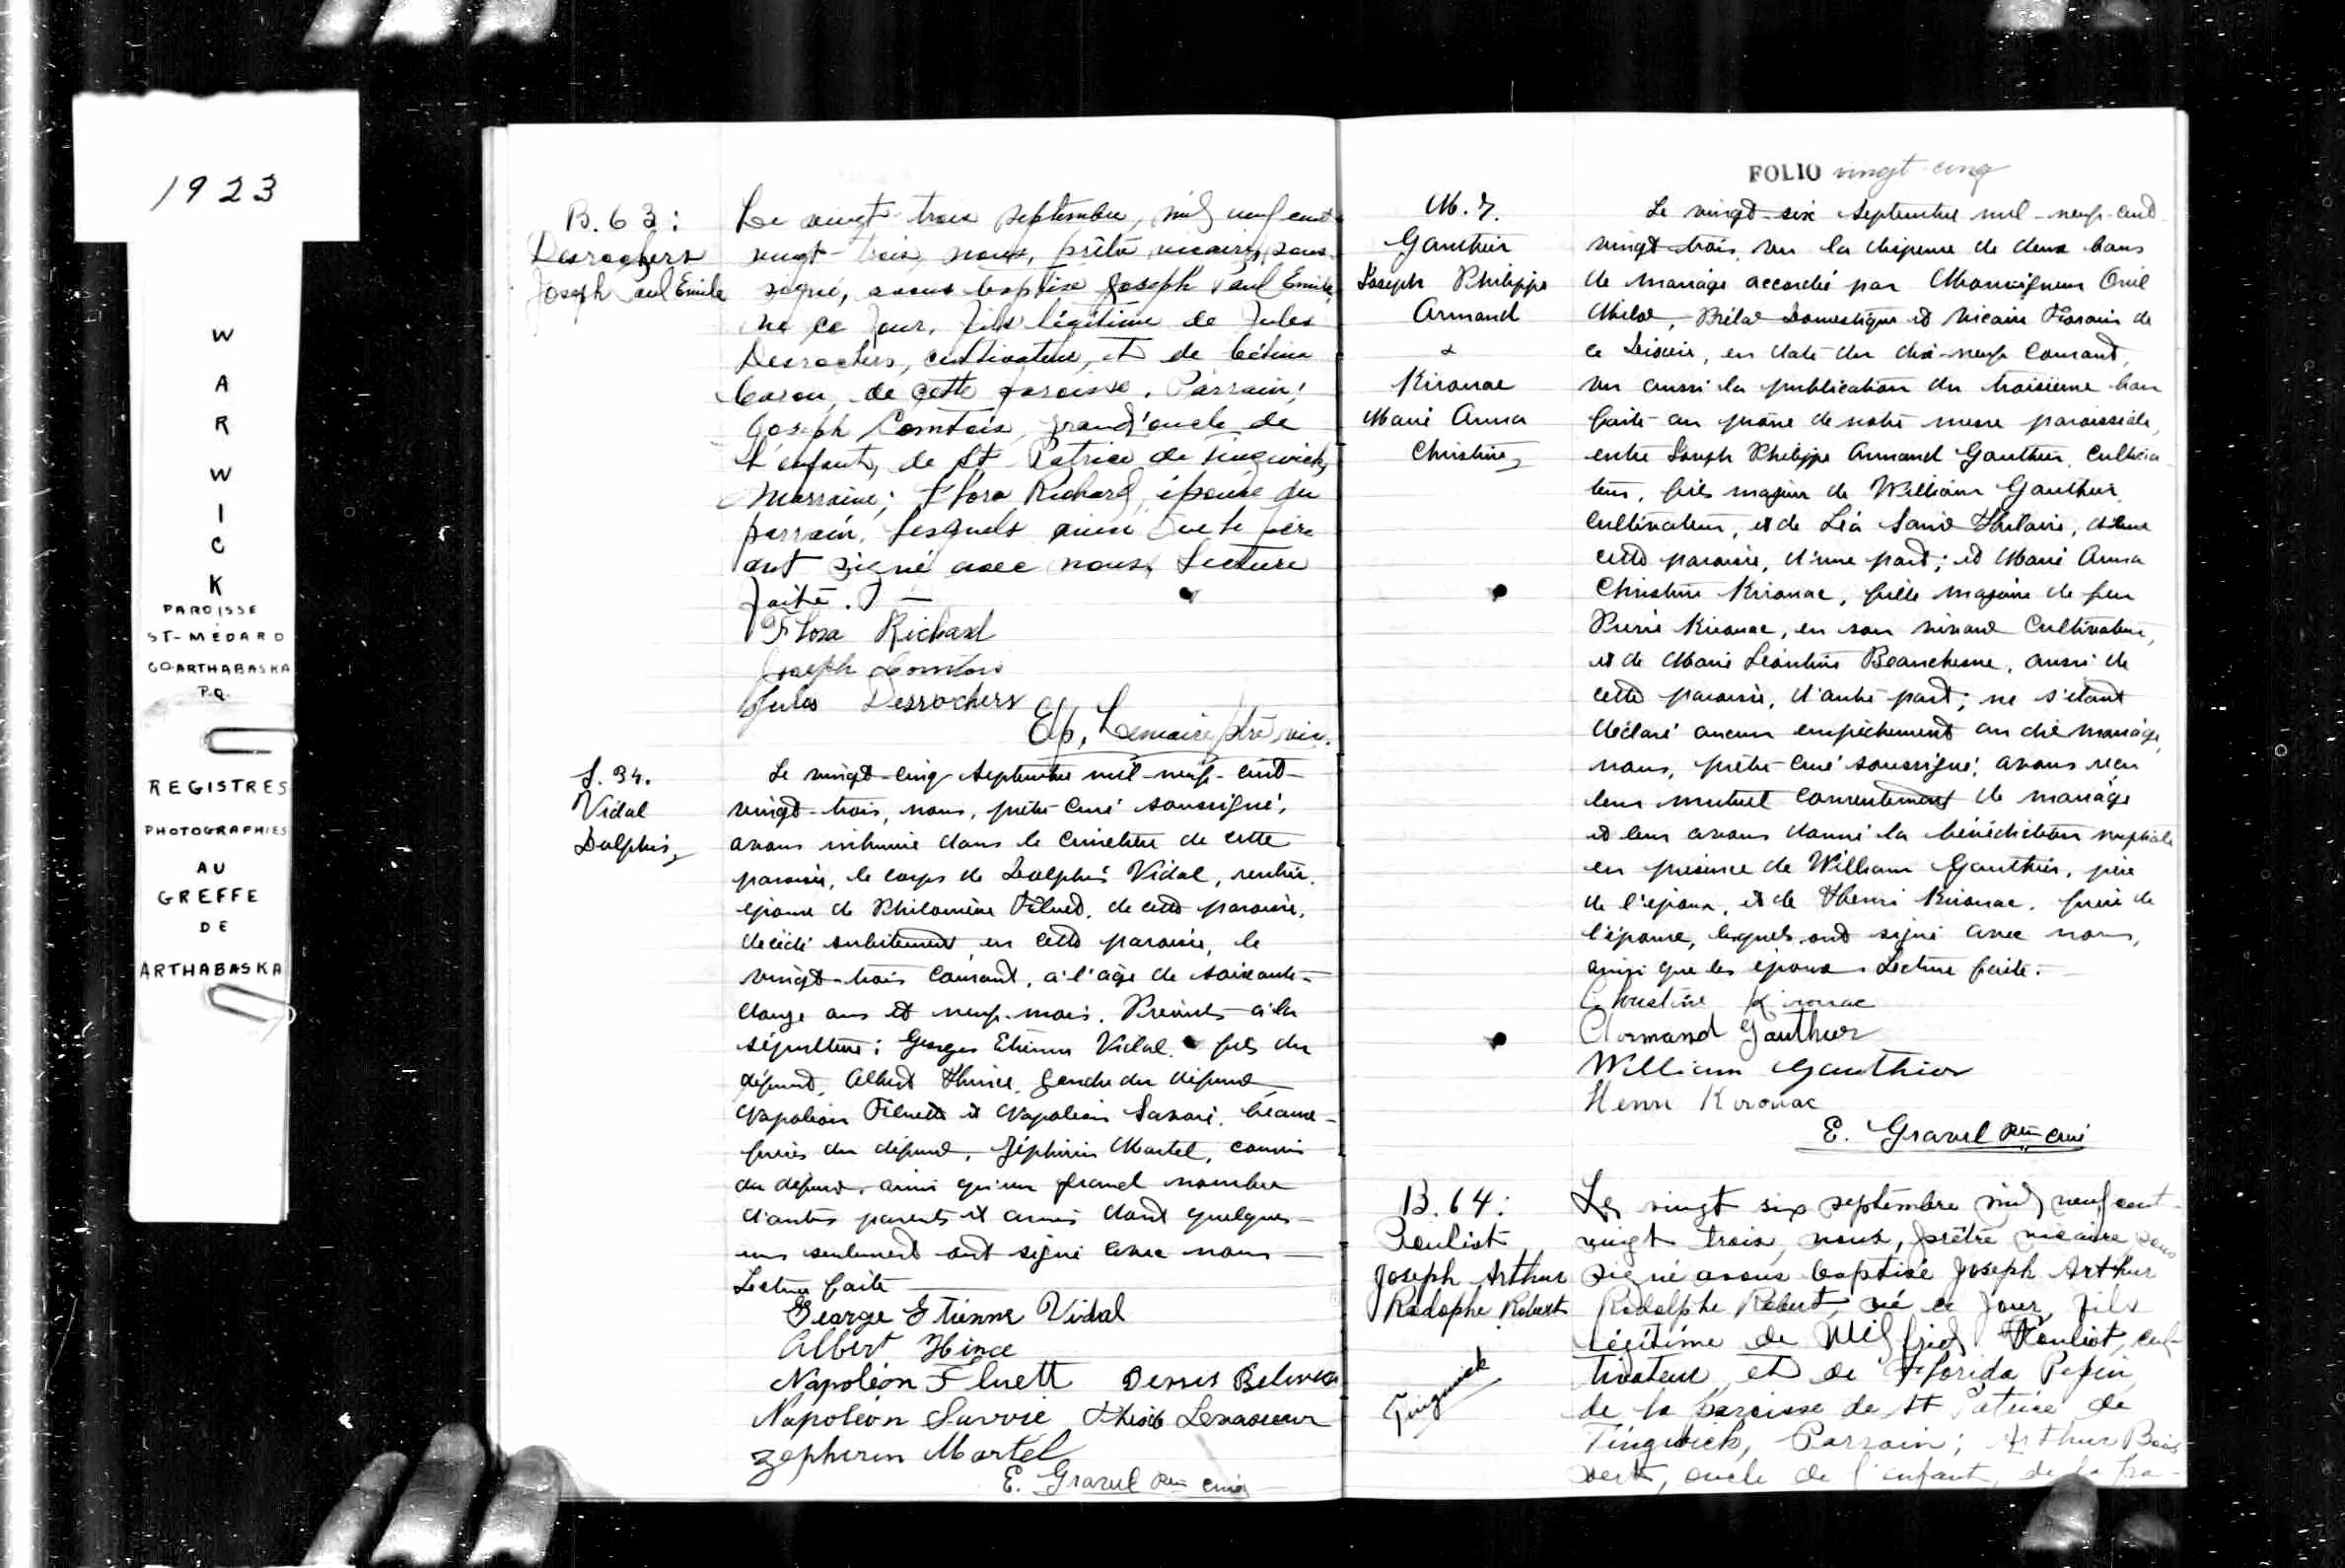 1923
W
A
R
W
I
C
K
PAROISSE
ST-MÉDARD
CO. ARTHABASKA
P.Q.
REGISTRES
PHOTOGRAPHIES
AU
GREFFE
DE
ARTHABASKA
B. 63:
Desrochers
Joseph Paul Emile
Le vingt-trois septembre, mil neuf cent
vingt-trois, nous, prêtre vicaire, sous
signé, avons baptisé Joseph Paul Emile,
né ce jour, fils légitime de Jules
Desrochers, cultivateur, et de
de cette paroisse. Parrain:
Joseph Comtois, grand'oncle de
l'enfant, de St Patrice de Tingwick,
Marraine: Flora Richard, épouse du
parrain, lesquels ainsi que le père
ont signé avec nous. Lecture
faite.
Flora Richard
Joseph Comtois
Jules Desrochers
Ep. Lemaire ptre vic.
S. 34.
Vidal
Delphis
Le vingt-cinq septembre mil-neuf-cent-
vingt-trois, nous, prêtre curé soussigné,
avons inhumé dans le cimetière de cette
paroisse, le corps de Delphis Vidal, rentier,
époux de Philomène Fluet, de cette paroisse,
décédé subitement en cette paroisse, le
vingt-trois courant, à l'âge de soixante-
douze ans et neuf mois. Présents à la
sépulture: Georges Etienne Vidal, fils du
défunt, Albert Hince, gendre du défunt,
Napoléon Fluette et Napoléon Savoie, beaux-
frères du défunt, Zéphirin Martel, cousin
du défunt, ainsi qu'un grand nombre
d'autres parents et amis dont quelques-
uns seulement ont signé avec nous
Lecture faite
George Etienne Vidal
Albert Hince
Napoléon Fluett Denis
Napoléon Savoie Levasseur
Zepherin Martel
E. Gravel ptre curé
FOLIO vingt-cinq
M. 7.
Gauthier
Joseph Philippe
Armand
&
Kirouac
Marie Anna
Christine
Le vingt-six septembre mil-neuf-cent
vingt-trois, vu la dispense de deux bans
de mariage accordée par Monseigneur
Milot, Prélat Domestique et Vicaire Forain de
ce Diocèse, en date du dix-neuf courant,
vu aussi la publication du troisième ban
faite au prône de notre messe paroissiale,
entre Joseph Philippe Armand Gauthier, cultiva-
teur, fils majeur de William Gauthier
cultivateur, et de Léa Saint Hilaire, de
cette paroisse, d'une part; et Marie Anna
Christine Kirouac, fille majeure de feu
Pierre Kirouac, en son vivant cultivateur,
et de Marie Léontine Beauchesne, aussi de
cette paroisse, d'autre part; ne s'étant
déclaré aucun empêchement au dit mariage,
nous, prêtre-curé soussigné, avons reçu
leur mutuel consentement de mariage
et leur avons donné la bénédiction nuptiale
en présence de William Gauthier, père
de l'époux, et de Henri Kirouac, frère de
l'épouse, lesquels ont signé avec nous,
ainsi que les époux. Lecture faite.
Christine Kirouac
Armand Gauthier
William Gauthier
Henri Kirouac
E. Gravel ptre curé
B. 64:
Pouliot
Joseph Arthur
Rodophe Robert
Tingwick
Le vingt six septembre mil neuf cent
vingt trois, nous, prêtre vicaire sous
signé avons baptisé Joseph Arthur
Rodolphe Robert, né ce jour, fils
légitime de Wilfrid Pouliot, cul-
tivateur, et de Florida Pepin,
de la paroisse de St Patrice de
Tingwick, Parrain; Arthur Bois
vert, oncle de l'enfant, de la pa-